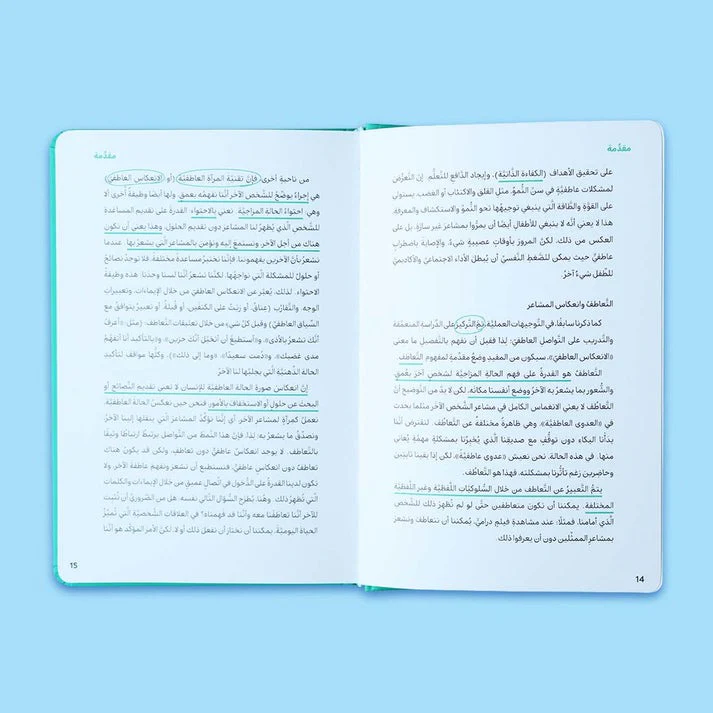 مقدّمة
على تحقيق الأهداف (الكفاءة الذّاتيّة)، وإيجاد الدّافع للتّعلّم. إنّ التعرّض
لمشكلات عاطفيّة في سنّ النّموّ، مثل القلق والاكتئاب أو الغضب، يستولي
على القوّة والطّاقة الّتي ينبغي توجيهها نحو النّموّ والاستكشاف والمعرفة.
هذا لا يعني أنّه لا ينبغي للأطفال أيضًا أن يمرّوا بمشاعر غير سارّة، بل على
العكس من ذلك. لكنّ المرور بأوقاتٍ عصيبةٍ شيءٌ، والإصابة باضطرابٍ
عاطفيٍّ حيث يمكن للضّغط النّفسيّ أن يُبطل الأداء الاجتماعيّ والأكاديميّ
للطّفل شيءٌ آخرُ.
التّعاطف وانعكاس المشاعر
كما ذكرنا سابقًا، في التّوجيهات العمليّة، تمّ التّركيز على الدّراسة المتعمّقة
والتّدريب على التّواصل العاطفيّ؛ لذا فقبل أن نفهم بالتّفصيل ما معنى
«الانعكاس العاطفيّ»، سيكون من المفيد وضعُ مقدّمةٍ لمفهوم التّعاطف.
التّعاطفُ هو القدرةُ على فهم الحالة المزاجيّة لشخصٍ آخرَ بعمقٍ
والشّعور بما يشعرُ به الآخرُ ووضع أنفسنا مكانَه. لكن لا بدّ من التّوضيح أنّ
التّعاطُف لا يعني الانغماس الكامل في مشاعر الشّخص الآخر مثلما يحدث
في «العدوى العاطفيّة»، وهي ظاهرةٌ مختلفةٌ عن التّعاطف. لنفترض أنّنا
بدأنا البكاء دون توقّفٍ مع صديقنا الّذي يُخبرنا بمشكلةٍ مهمّة يُعاني
منها. في هذه الحالة، نحن نعيش «عدوى عاطفيّة»، لكن إذا بقينا ثابتين
وحاضرين رغم تأثّرنا بمشكلته، فهذا هو التّعاطُف.
يتمُّ التّعبيرُ عن التّعاطف من خلال السّلوكيّات اللّفظيّة وغير اللّفظيّة
المختلفة. يمكننا أن نكون متعاطفين حتّى لو لم نُظهِرْ ذلك للشّخص
الّذي أمامنا. فمثلًا: عند مشاهدة فيلم دراميٍّ، يُمكننا أن نتعاطف ونشعر
بمشاعر الممثّلين دون أن يعرفوا ذلك.
14
مقدّمة
من ناحيةٍ أخرى، فإنّ تقنيّة المرآة العاطفيّة (أو الانعكاس العاطفيّ)
هي إجراءٌ يوضّحُ للشّخص الآخر أنّنا نفهمُه بعمقٍ. ولها أيضًا وظيفةٌ أخرى ألا
وهي احتواءُ الحالة المزاجيّة. نعني بالاحتواء: القدرة على تقديم المساعدة
للشّخص الّذي يُظهرُ لنا المشاعر دون تقديم الحلول. وهذا يعني أن نكون
هناك من أجل الآخر، ونستمع إليه ونؤمن بالمشاعر الّتي يشعرُ بها. عندما
نشعرُ بأنّ الآخرين يفهموننا، فإنّنا نختبرُ مساعدةً مختلفة، فلا توجدُ نصائحُ
أو حلولٌ للمشكلة الّتي نواجهُها، لكنّنا نشعرُ أنّنا لسنا وحدنا: هذه وظيفةُ
الاحتواء. لذلك، يُعبّر عن الانعكاس العاطفيّ من خلال الإيماءات، وتعبيرات
الوجه، والتّقارُب (عناقٌ، أو ربتٌ على الكتفين، أو قُبلةٌ، أو تعبيرٌ يتوافقُ مع
السّياق العاطفيّ) وقبل كلّ شيءٍ من خلال تعليقات التّعاطف: (مثل: «أعرفُ
أنّك تشعرُ بالأذى»، و«أستطيعُ أن أتخيّلَ أنّك حزين»، و«بالتّأكيد أنا أتفهّمُ
مدى غضبك»، و«دُمت سعيدًا!» «وما إلى ذلك»)، وكلُّها مواقف لتأكيد
الحالة الذّهنيّة الّتي يجلبُها لنا الآخرُ.
إنّ انعكاس صورة الحالة العاطفيّة للإنسان لا تعني تقديمَ النّصائح أو
البحثَ عن حلولٍ أو الاستخفافَ بالأمور، فنحن حين نعكسُ الحالةَ العاطفيّة،
نعملُ كمرآةٍ لمشاعر الآخر، أي إنّنا نؤكّدُ المشاعرَ الّتي ينقلُها إلينا الآخرُ،
ونُصدّقُ ما يشعرُ به؛ لذا، فإنّ هذا النّمط من التّواصل يرتبطُ ارتباطًا وثيقًا
بالتّعاطُف. لا يوجدُ انعكاسٌ عاطفيٌّ دون تعاطفٍ، ولكن قد يكونُ هناك
تعاطفٌ دون انعكاسٍ عاطفيٍّ. فنستطيعُ أن نشعر ونفهم عاطفة الآخر، ولا
تكون لدينا القدرةُ على الدّخول في اتّصالٍ عميقٍ من خلال الإيماءات والكلمات
الّتي تُظهرُ ذلك. وهُنا يُطرحُ السّؤالُ التّالي نفسه: هل من الضّروريّ أن نُثبتَ
للآخر أنّنا تعاطفنا معه وأنّنا قد فهمناه؟ في العلاقات الشّخصيّة الّتي تُميّزُ
الحياة اليوميّة، يمكننا أن نختارَ أن نفعل ذلك أو لا، لكنّ الأمرَ المؤكّد هو أنّنا
15